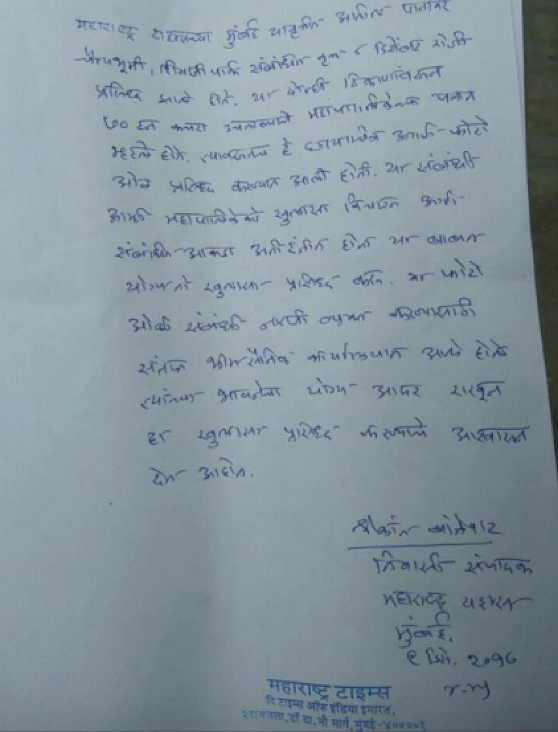 महाराष्ट्र टाइम्सच्या मुंबई आवृत्तीत
चैत्यभूमी, शिवाजी पार्क संबंधीत वृत्त ८ डिसेंबर रोजी
प्रसिद्ध झाले होते. या दोन्ही ठिकाणांवरून
७० टन कचरा उचलल्याचे महापालिकेच्या
म्हटले होते. त्याबद्दल हे छायाचित्र आणि फोटो
ओळ प्रसिद्ध करण्यात आली होती. या संबंधी
आम्ही महापालिकेकडे खुलासा विचारत आहो-
संबंधीत आकडा अतिरंजीत होता या बाबत
योग्य तो खुलासा प्रसिद्ध करू. या फोटो
ओळी संबंधी नाराजी व्यक्त करण्यासाठी
संतप्त भीमसैनिक कार्यालयात आले होते
त्यांच्या भावनेचा योग्य आदर राखून
हा खुलासा प्रसिद्ध करण्याचे आश्वासन
देत आहोत.
श्रीकांत बोजेवार
निवासी संपादक
महाराष्ट्र टाइम्स
मुंबई.
९ डिसे. २०१८
महाराष्ट्र टाइम्स
दि टाइम्स ऑफ इंडिया इमारत,
२ रा मजला, डॉ. दा. नौ मार्ग, मुंबई - ४००००१